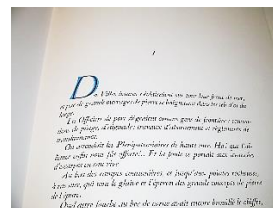 I
De Villes hautes s'éclairaient sur tout leur front de mer,
et par de grands ouvrages de pierre se baignaient dans les sels d'or du
large.
Les Officiers de port siégeaient comme gens de frontière :
de péage, d'aiguade ; travaux d'abornement et règlements de
transhumance.
On attendait les Plénipotentiaires de haute mer. Ha ! que l'al-
liance enfin nous fût offerte !... Et la foule se portait aux
d'escarpes en eau vive,
Au bas des rampes coutumières, et jusqu'aux pointes rocheuses,
à ras mer, qui sont le glaive et l'éperon des grands concepts de pierre
de l'épure.
Quel astre fourbe au bec de corne avait encore brouillé le chiffre,